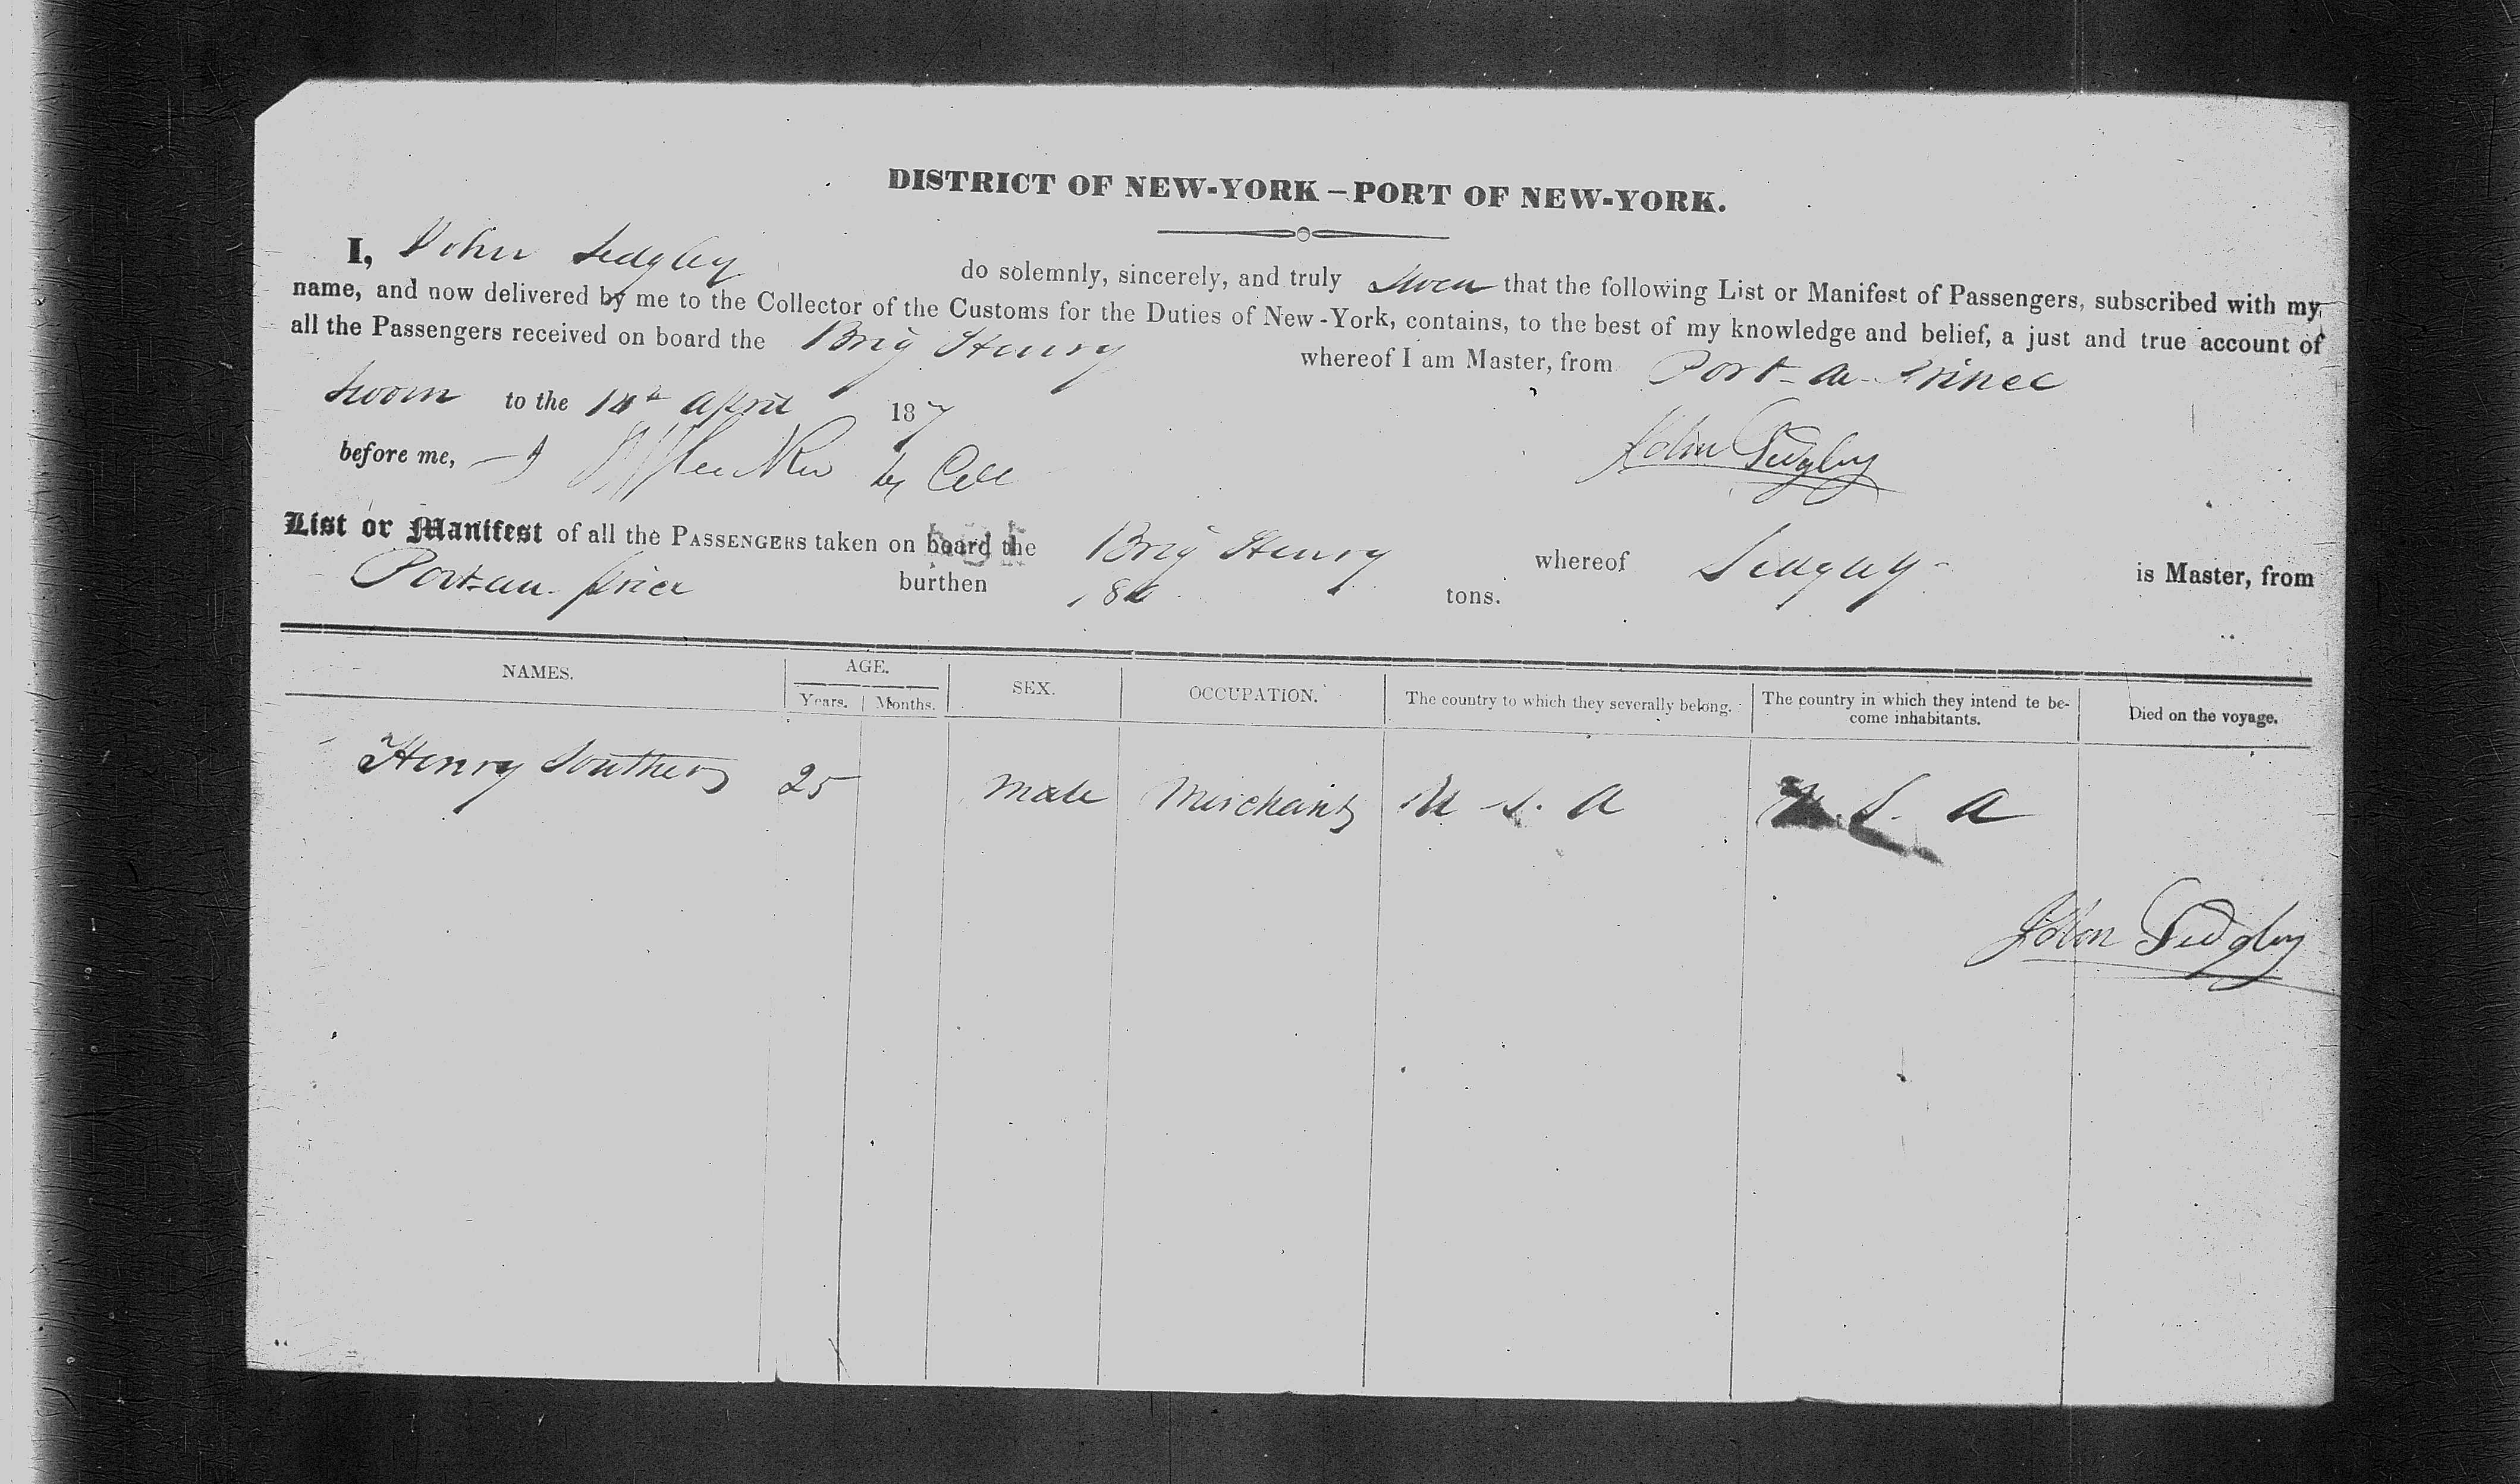 DISTRICT OF NEW-YORK – PORT OF NEW-YORK.
I, John Sedgley do solemnly, sincerely, and truly Swear that the following List or Manifest of Passengers, subscribed with my
name, and now delivered by me to the Collector of the Customs for the Duties of New-York, contains, to the best of my knowledge and belief, a just and true account of
all the Passengers received on board the Brig Henry whereof I am Master, from Port-au-Prince
Sworn to the 14th April 187
before me, Col John Sedgley
List or Manifest of all the PASSENGERS taken on board the Brig Henry whereof Sedgley is Master, from
Port-au-price burthen tons.
NAMES. AGE. SEX. OCCUPATION. The country to which they severally belong. The country in which they intend te be-
come inhabitants. Died on the voyage.
Years. Months.
Henry Southers 25 male Merchant U. S. A U. S. A
John Sedgley